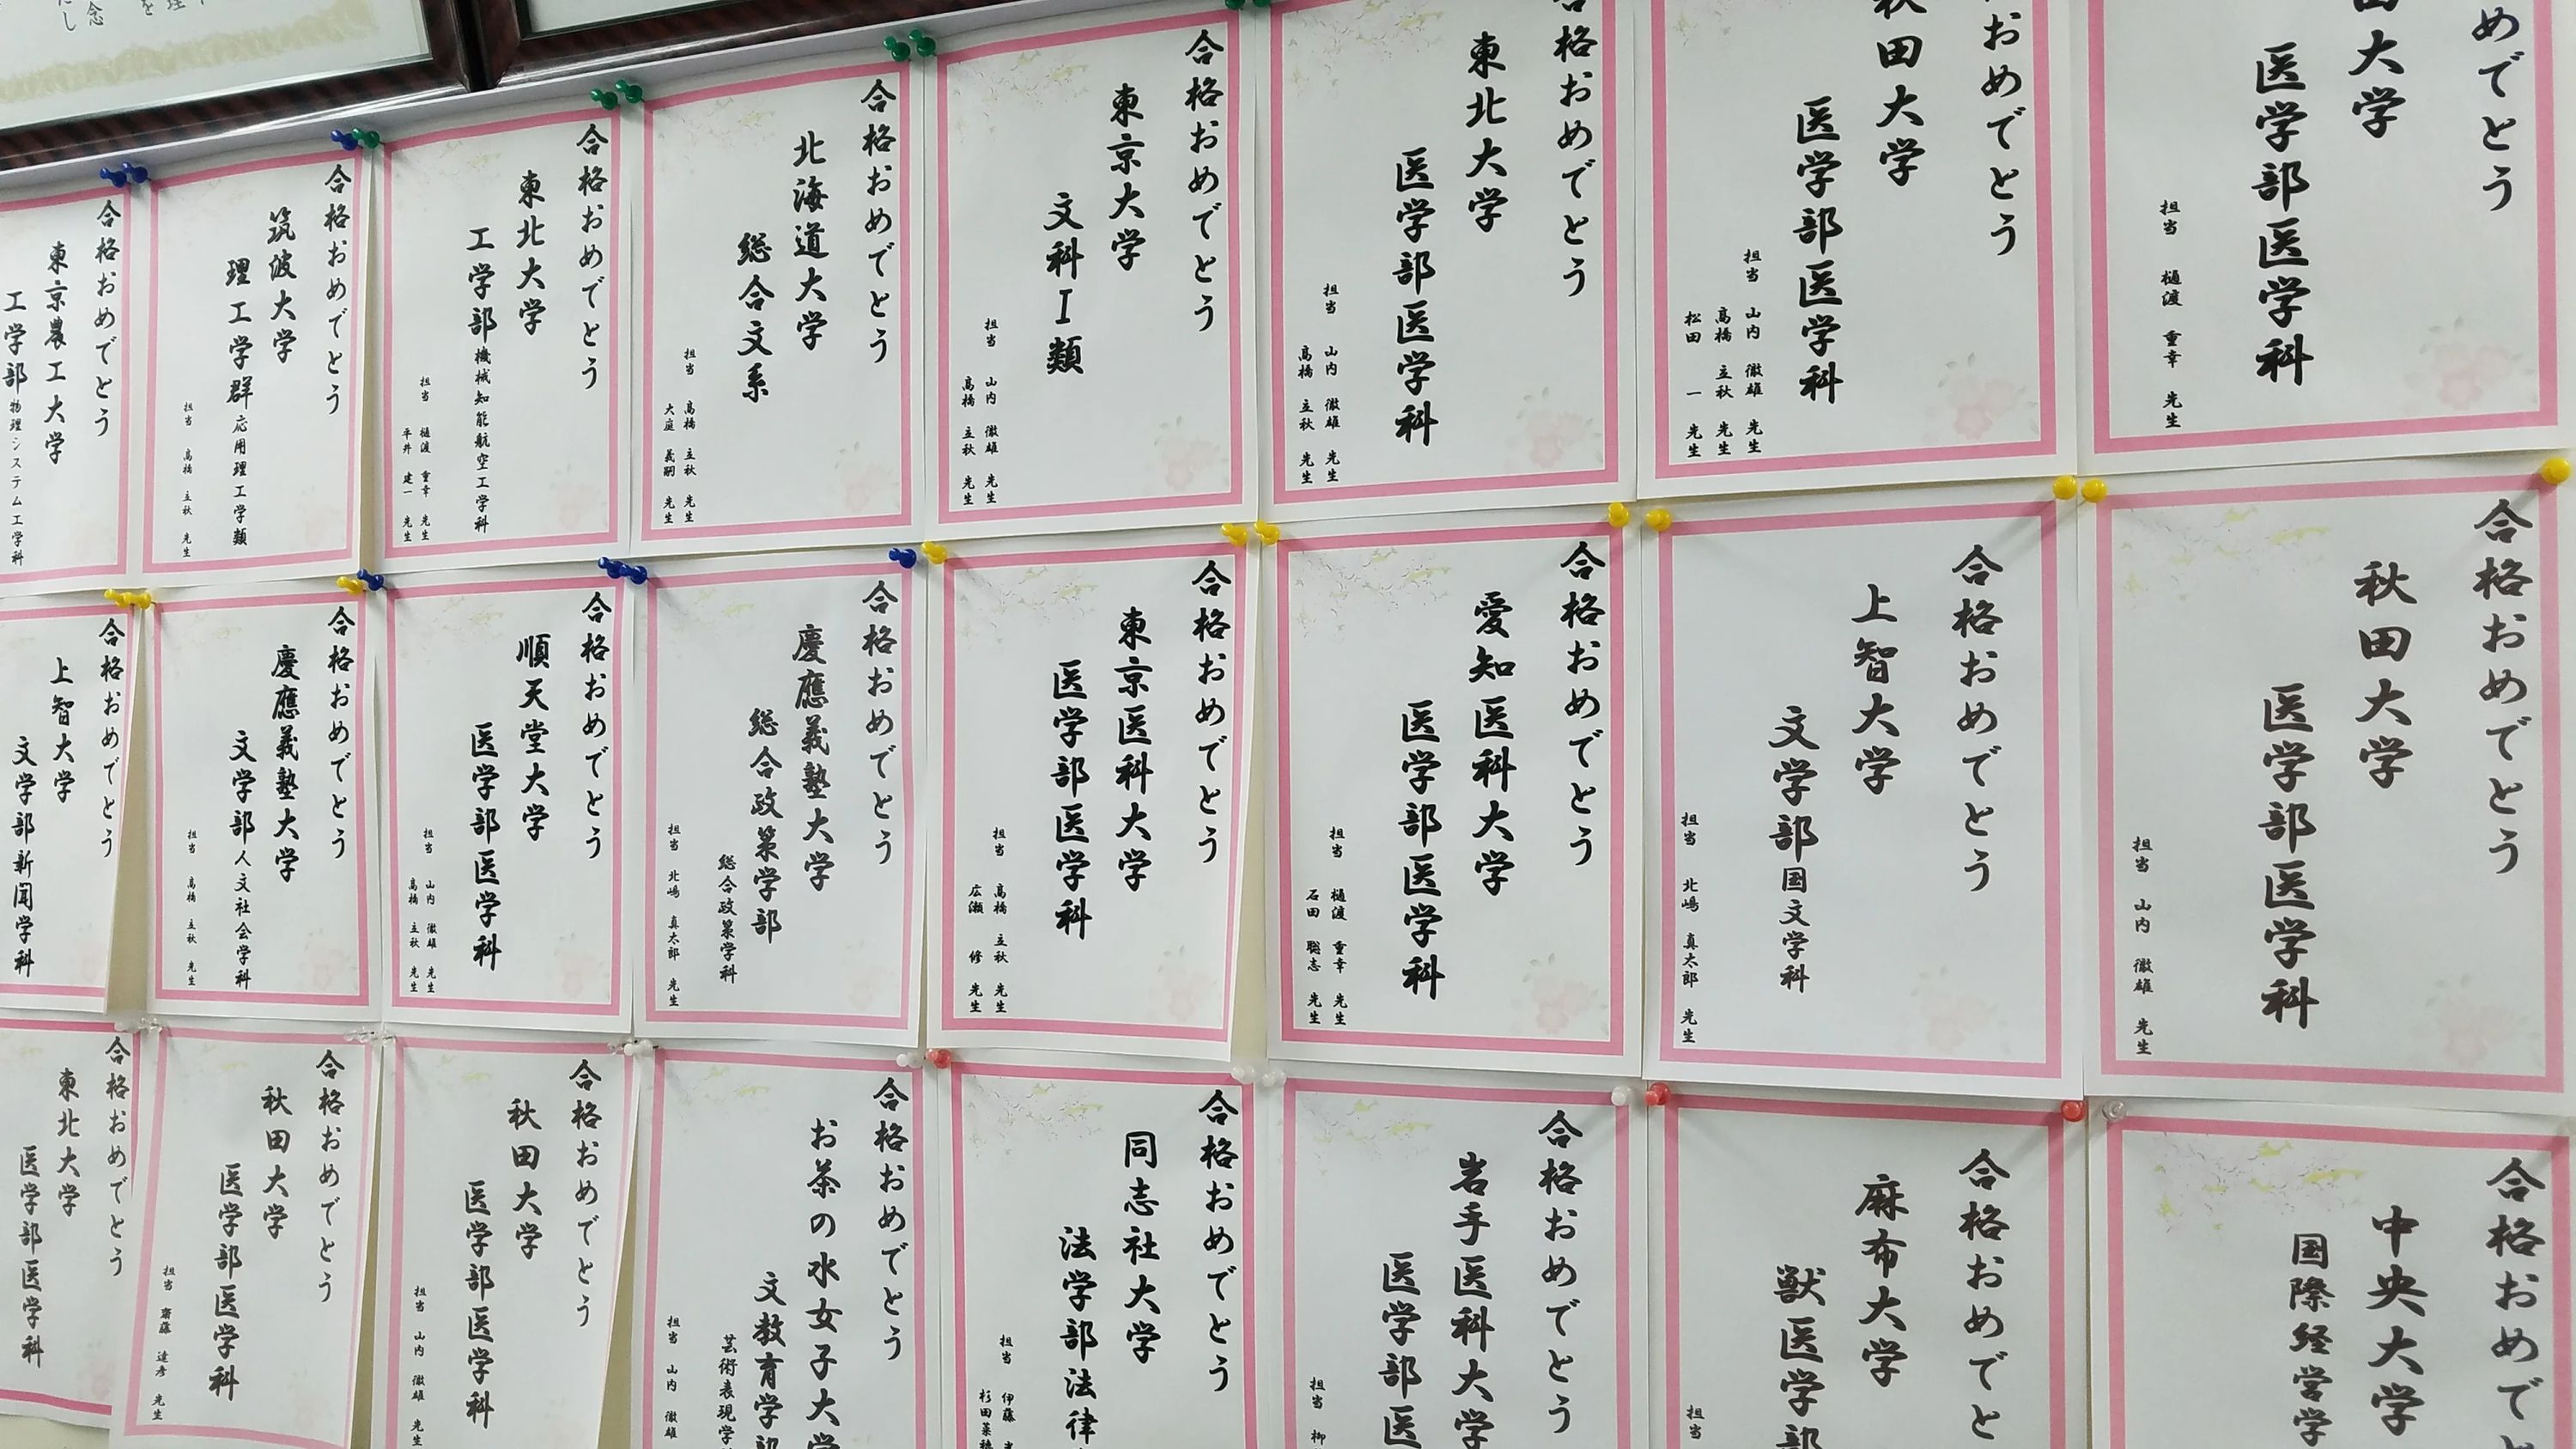 めでとう
田大学
医学部医学科
担当 樋渡 重幸 先生
おめでとう
秋田大学
医学部医学科
担当 山内 徹雄 先生
高橋 立秋 先生
松田 一 先生
合格おめでとう
東北大学
医学部医学科
担当 山内 徹雄 先生
高橋 立秋 先生
合格おめでとう
東京大学
文科I類
担当 山内 徹雄 先生
高橋 立秋 先生
合格おめでとう
北海道大学
総合文系
担当 高橋 立秋 先生
大庭 義嗣 先生
合格おめでとう
東北大学
工学部機械知能航空工学科
担当 樋渡 重幸 先生
平井 建一 先生
合格おめでとう
筑波大学
理工学群応用理工学類
担当 高橋 立秋 先生
合格おめでとう
東京農工大学
工学部物理システム工学科
合格おめでとう
秋田大学
医学部医学科
担当 山内 徹雄 先生
合格おめでとう
上智大学
文学部国文学科
担当 北嶋 真太郎 先生
合格おめでとう
愛知医科大学
医学部医学科
担当 樋渡 重幸 先生
石田 聡志 先生
合格おめでとう
東京医科大学
医学部医学科
担当 高橋 立秋 先生
広瀬 修 先生
合格おめでとう
慶應義塾大学
総合政策学部
総合政策学科
担当 北嶋 真太郎 先生
合格おめでとう
順天堂大学
医学部医学科
担当 山内 徹雄 先生
高橋 立秋 先生
合格おめでとう
慶應義塾大学
文学部人文社会学科
担当 高橋 立秋 先生
合格おめでとう
上智大学
文学部新聞学科
合格おめで
中央大学
国際経営学
合格おめでと
麻布大学
獣医学部
担当
合格おめでとう
岩手医科大学
医学部医
担当 柳
合格おめでとう
同志社大学
法学部法律
担当 伊藤
杉田菜穂
合格おめでとう
お茶の水女子大学
文教育学部
芸術表現学
担当 山内 徹雄
合格おめでとう
秋田大学
医学部医学科
担当 山内 徹雄 先生
合格おめでとう
秋田大学
医学部医学科
担当 齋藤 達彦 先生
合格おめでとう
東北大学
医学部医学科